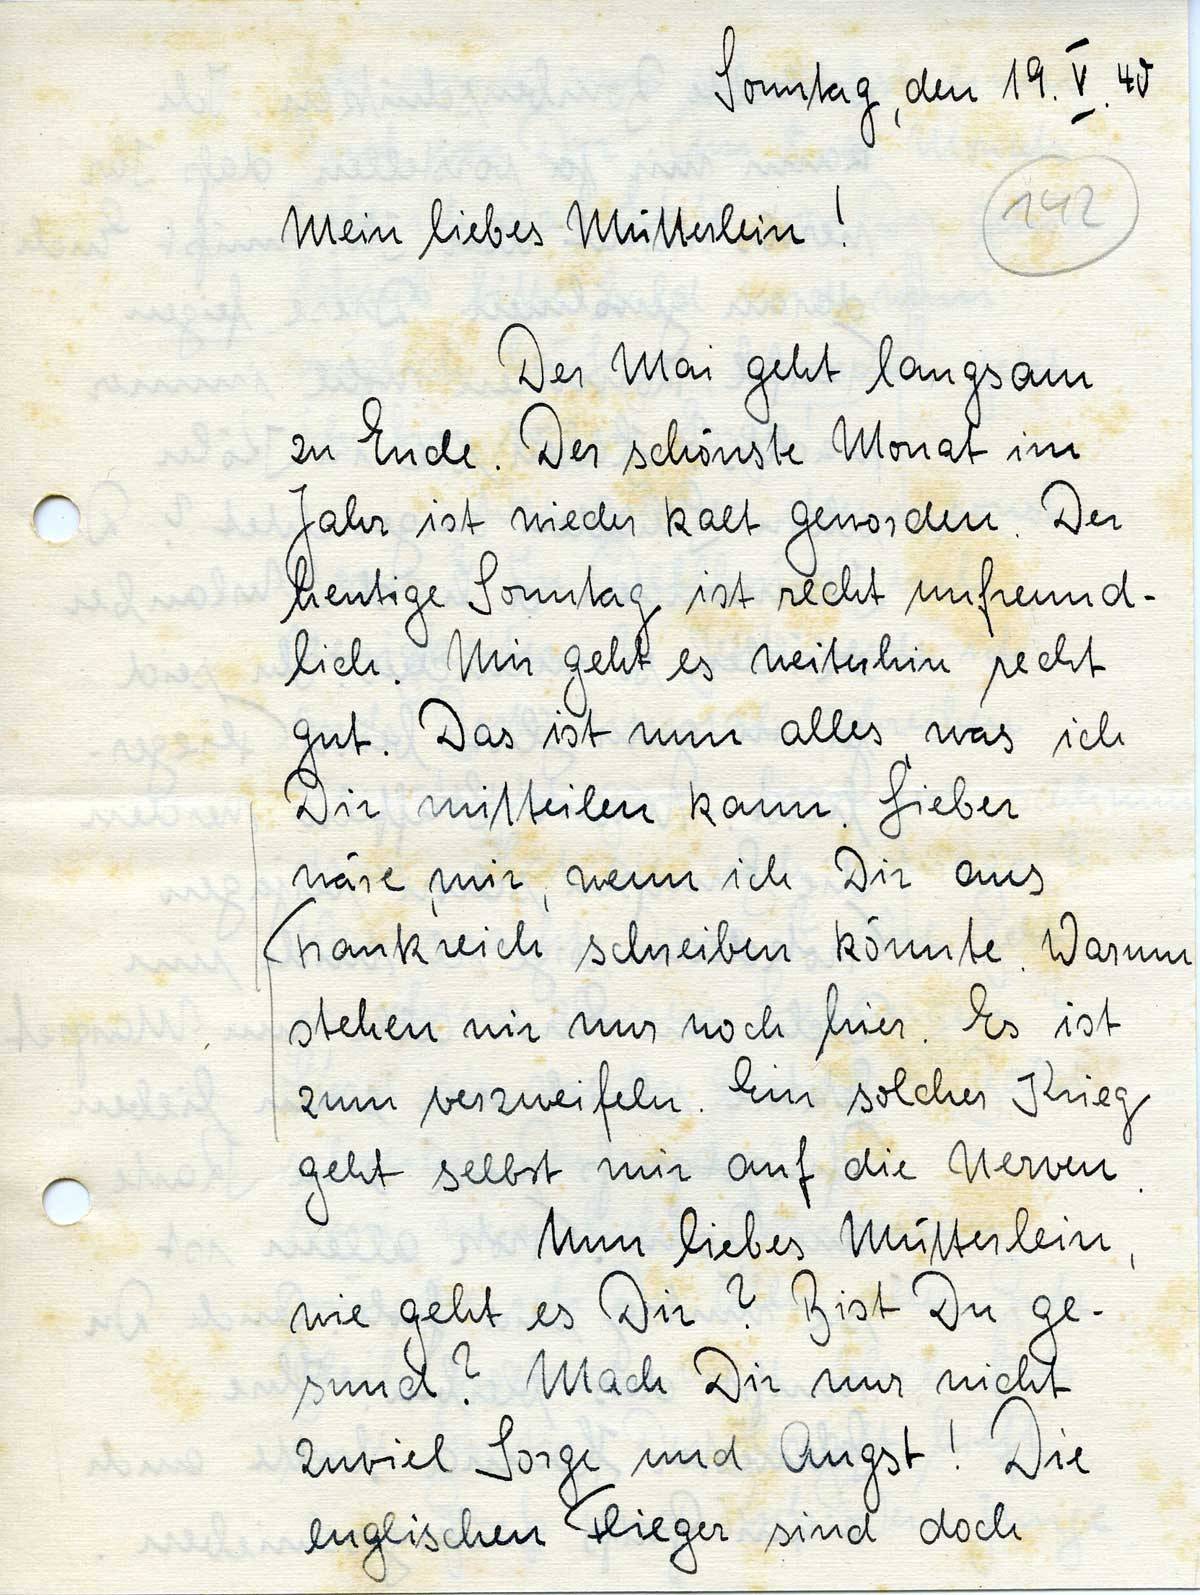 Sonntag, den 19. V. 40
142
Mein liebes Mütterlein!
Der Mai geht langsam
zu Ende. Der schönste Monat im
Jahr ist wieder kalt geworden. Der
heutige Sonntag ist recht unfreund-
lich. Mir geht es weiterhin recht
gut. Das ist nun alles, was ich
Dir mitteilen kann. Lieber
wäre mir, wenn ich Dir aus
Frankreich schreiben könnte. Warum
stehen wir nur noch hier. Es ist
zum verzweifeln. Ein solcher Krieg
geht selbst mir auf die Nerven.
Nun liebes Mütterlein,
wie geht es Dir? Bist Du ge-
sund? Mach Dir nur nicht
zuviel Sorge und Angst! Die
englischen Flieger sind doch